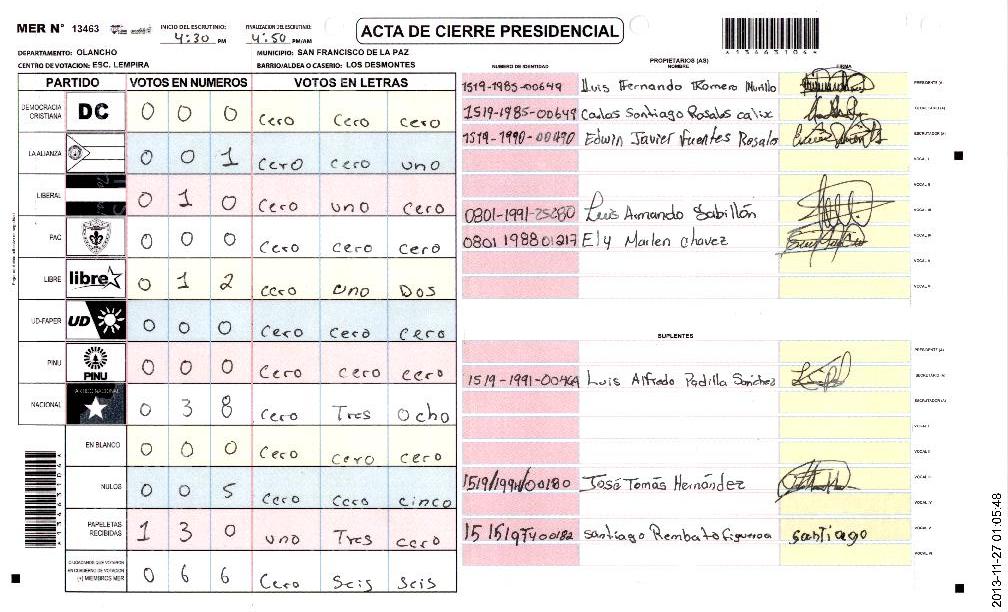 MER N° 13463
INICIO DEL ESCRUTINIO:
4:30 PM
FINALIZACION DEL ESCRUTINIO:
4:50 PM/AM
ACTA DE CIERRE PRESIDENCIAL
*1346310 4*
DEPARTAMENTO: OLANCHO
MUNICIPIO: SAN FRANCISCO DE LA PAZ
CENTRO DE VOTACION: ESC. LEMPIRA
BARRIO/ALDEA O CASERIO: LOS DESMONTES
PARTIDO VOTOS EN NUMEROS VOTOS EN LETRAS
DEMOCRACIA CRISTIANA DC 0 0 0 Cero Cero Cero
LA ALIANZA 0 0 1 Cero cero uno
LIBERAL 0 1 0 Cero uno Cero
PAC 0 0 0 Cero cero cero
LIBRE libre 0 1 2 Cero uno Dos
UD-FAPER UD 0 0 0 Cero Cero Cero
PINU PINU 0 0 0 Cero cero cero
NACIONAL 0 3 8 Cero Tres Ocho
EN BLANCO 0 0 0 Cero Cero Cero
NULOS 0 0 5 Cero Cero cinco
PAPELETAS RECIBIDAS 1 3 0 uno Tres cero
CIUDADANOS QUE VOTARON EN CUADERNO DE VOTACION (+) MIEMBROS MER 0 6 6 Cero Seis Seis
PROPIETARIOS (AS)
NUMERO DE IDENTIDAD NOMBRE FIRMA
1519-1985-00649 Luis Fernando Romero Murillo PRESIDENTE (A)
1519-1985-00649 Carlos Santiago Rosales calix SECRETARIO (A)
1519-1990-00490 Edwin Javier Fuentes Rosalo ESCRUTADOR (A)
VOCAL I
VOCAL II
Luis Armando Sabillón VOCAL III
0801 1988 01217 Ely Marlen chavez VOCAL IV
VOCAL V
VOCAL VI
SUPLENTES
PRESIDENTE (A)
1519-1991-00464 Luis Alfredo Padilla Sanchez SECRETARIO (A)
ESCRUTADOR (A)
VOCAL I
VOCAL II
José Tomás Hernández VOCAL III
VOCAL IV
santiago Rembato Figueroa santiago VOCAL V
VOCAL VI
2013-11-27 01:05:48